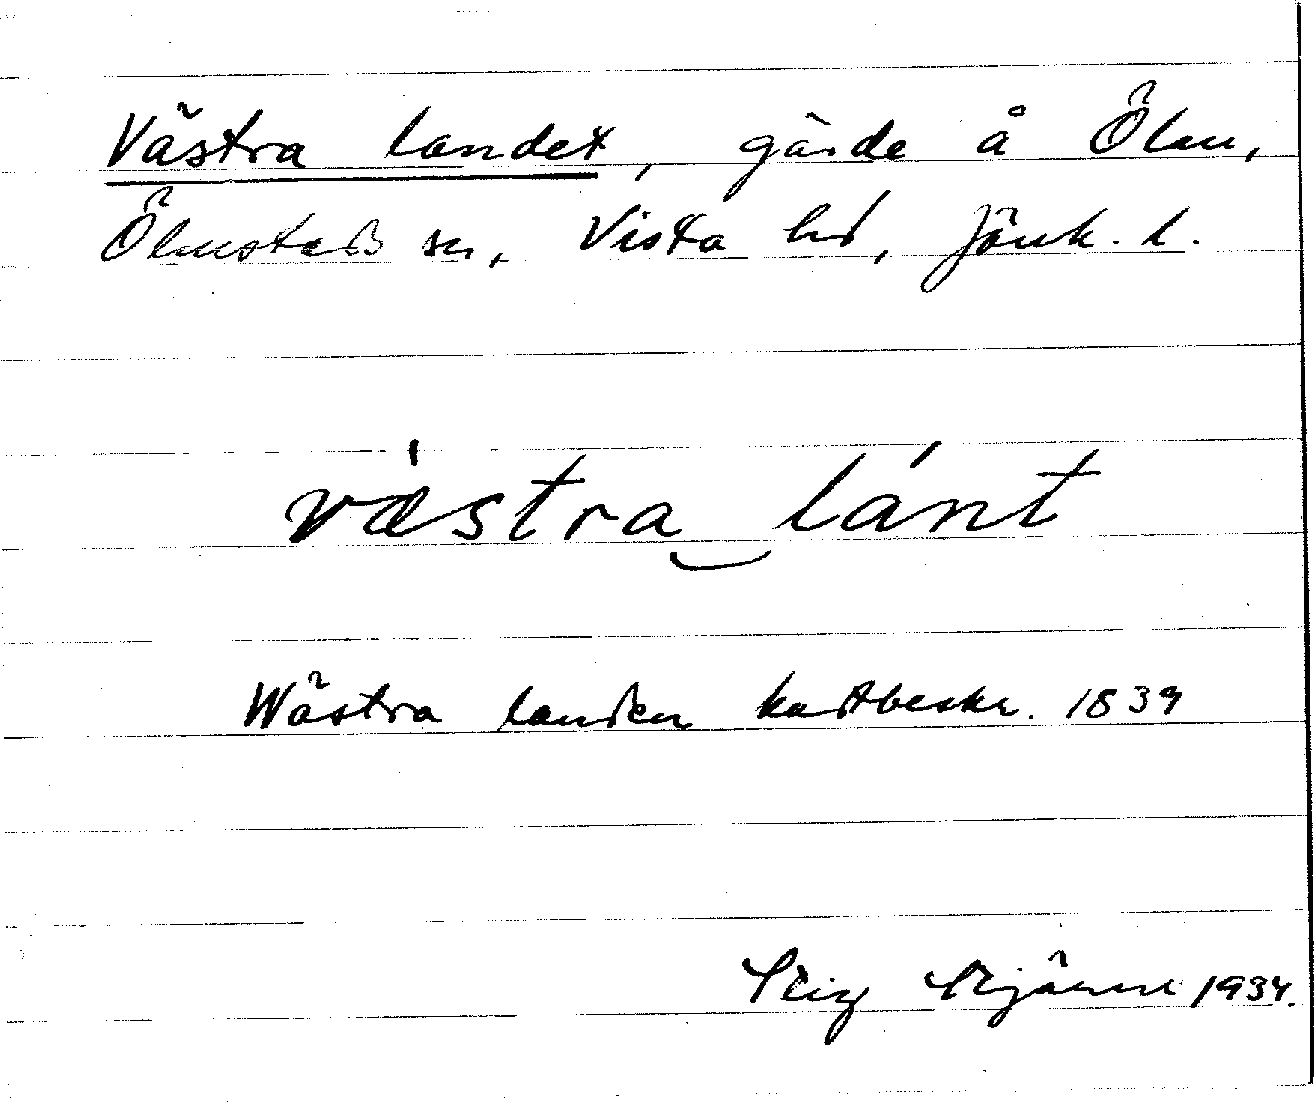 Västra landet, gärde å Ölm,
Ölmstads sn, Vista hd, Jönk. l.
væ̀stra‿lánt
Wästra landen kartbeskr. 1839
Stig Stjärne 1934.